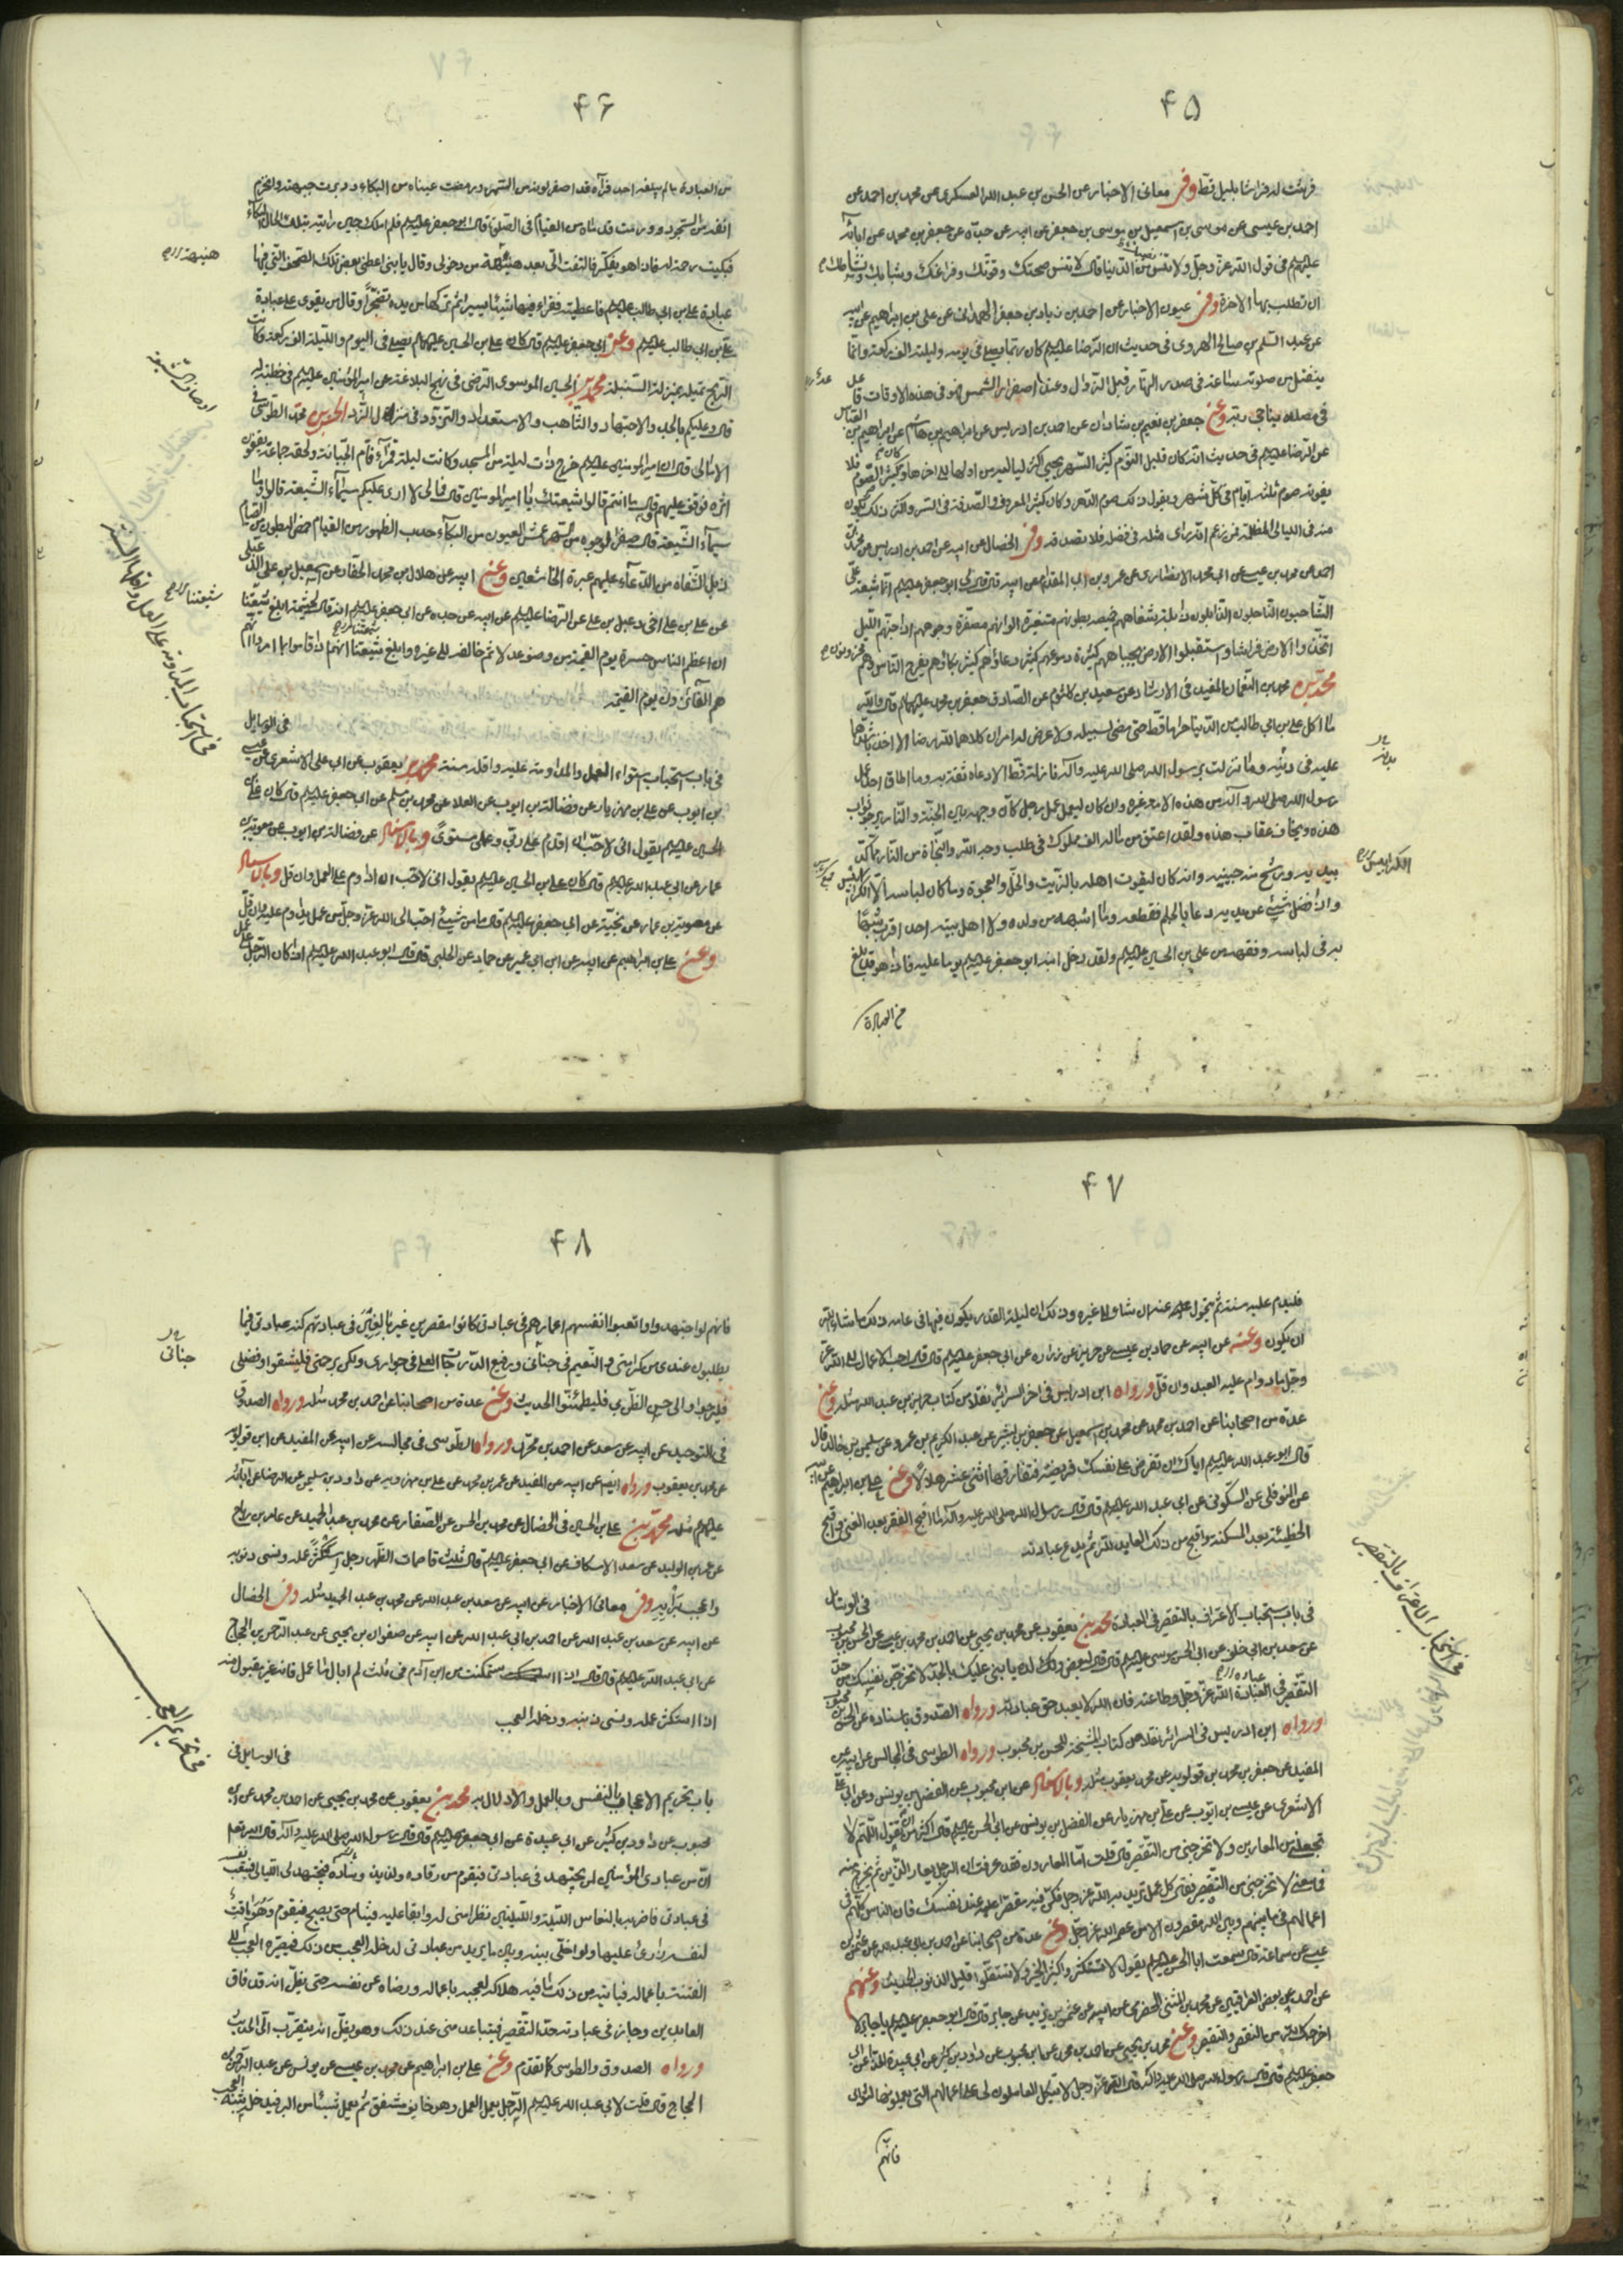 ۴۵
فرشت له فراشا بليل قط وفي معاني الاخبار عن الحسن بن عبد الله العسكري عن محمد بن احمد عن
احمد بن عيسى عن موسى بن اسمعيل بن موسى بن جعفر عن ابيه عن جده عن جعفر بن محمد عن ابائه
عليهم في قول الله عز وجل ولا تنس نصيبك من الدنيا قال لا تنس صحتك وقوتك وفراغك وشبابك ونشاطك
ان تطلب بها الاخرة وفي عيون الاخبار عن احمد بن زياد بن جعفر الهمداني عن علي بن ابراهيم عن ابيه
عن عبد السلم بن صالح الهروي في حديث ان الرضا عليه السلم كان ربما يصلي في يومه وليلته الف ركعة وانما
ينفتل من صلوته ساعة في صدر النهار قبل الزوال وعند اصفرار الشمس فهو في هذه الاوقات قاعد
في مصلاه يناجي ربه وعن جعفر بن نعيم بن شاذان عن احمد بن ادريس عن ابراهيم بن هاشم عن ابراهيم بن العباس
عن الرضا عليه السلم في حديث انه كان قليل النوم كثير السهر يحيي اكثر لياليه من اولها الى اخرها وكان كثير الصوم فلا
يفوته صوم ثلثة ايام في كل شهر ويقول ذلك صوم الدهر وكان كثير المعروف والصدقة في السر واكثر ذلك يكون
منه في الليالي المظلمة فمن زعم انه راى مثله في فضله فلا تصدقه وفي الخصال عن ابيه عن احمد بن ادريس عن محمد بن
احمد عن محمد بن عيسى عن ابي محمد الانصاري عن عمرو بن ابي المقدام عن ابيه قال قال لي ابو جعفر عليه السلم انما شيعة علي
الشاحبون الناحلون الذابلون ذابلة شفاههم خميصة بطونهم متغيرة الوانهم مصفرة وجوههم اذا جنهم الليل
اتخذوا الارض فراشا واستقبلوا الارض بجباههم كثيرة دموعهم كثير دعاؤهم كثير بكاؤهم يفرح الناس وهم محزونون
محمد بن محمد بن النعمان المفيد في الارشاد عن سعيد بن كلثوم عن الصادق جعفر بن محمد عليهما السلم قال والله
ما اكل علي بن ابي طالب من الدنيا حراما قط حتى مضى لسبيله ولا عرض له امران كلاهما لله رضا الا اخذ باشدهما
عليه في دينه وما نزلت برسول الله صلى الله عليه وآله نازلة قط الا دعاه ثقة به وما اطاق احد عمل
رسول الله صلى الله عليه وآله من هذه الامة غيره وان كان ليعمل عمل رجل كأن وجهه بين الجنة والنار يرجو ثواب
هذه ويخاف عقاب هذه ولقد اعتق من ماله الف مملوك في طلب وجه الله والنجاة من النار مما كد
بيديه ورشح منه جبينه وانه كان ليقوت اهله بالزيت والخل والعجوة وما كان لباسه الا الكرابيس
واذا فضل شيء عن يديه دعا بالجلم فقطعه وما اشبهه من ولده ولا اهل بيته احد اقرب شبها
به في لباسه وفقهه من علي بن الحسين عليه السلم ولقد دخل ابنه ابو جعفر عليه السلم يوما عليه فاذا هو قد بلغ
من العبادة
۴۶
من العبادة ما لم يبلغه احد فرآه قد اصفر لونه من السهر ورمضت عيناه من البكاء ودبرت جبهته وانخرم
انفه من السجود وورمت قدماه من القيام في الصلوة قال ابو جعفر عليه السلم فلم املك حين رايته بتلك الحال البكاء
فبكيت رحمة له فاذا هو يفكر فالتفت الي بعد هنيهة من دخولي وقال يا بني اعطني بعض تلك الصحف التي فيها
عبادة علي بن ابي طالب عليه السلم فاعطيته فقرا فيها شيئا يسيرا ثم تركها من يده تضجرا وقال من يقوى على عبادة
علي بن ابي طالب عليه السلم وعن ابي جعفر عليه السلم قال كان علي بن الحسين عليهما السلم يصلي في اليوم والليلة الف ركعة وكانت
الريح تميله بمنزلة السنبلة محمد بن الحسين الموسوي الرضي في نهج البلاغة عن امير المؤمنين عليه السلم في خطبة له
قال وعليكم بالجد والاجتهاد والتاهب والاستعداد والتزود في منزل الزاد الحسن بن محمد الطوسي في
الامالي قال ان امير المؤمنين عليه السلم خرج ذات ليلة من المسجد وكانت ليلة قمراء فأم الجبانة ولحقه جماعة يقفون
اثره فوقف عليهم وقال من انتم قالوا شيعتك يا امير المؤمنين قال فمالي لا ارى عليكم سيماء الشيعة قالوا وما
سيماء الشيعة قال صفر الوجوه من السهر عمش العيون من البكاء حدب الظهور من القيام خمص البطون من الصيام
ذبل الشفاه من الدعاء عليهم غبرة الخاشعين وعن ابيه عن هلال بن محمد الحفار عن اسمعيل بن علي الدعبلي
عن علي بن علي اخي دعبل بن علي عن الرضا عليه السلم عن ابيه عن جده عن ابي جعفر عليه السلم انه قال لخيثمة ابلغ شيعتنا
ان اعظم الناس حسرة يوم القيمة من وصف عدلا ثم خالفه الى غيره وابلغ شيعتنا انهم اذا قاموا بما امروا انهم
هم الفائزون يوم القيمة
في الوسايل
في باب استحباب استواء العمل والمداومة عليه واقله سنة محمد بن يعقوب عن ابي علي الاشعري عن عيسى
بن ايوب عن علي بن مهزيار عن فضالة بن ايوب عن العلا عن محمد بن مسلم عن ابي جعفر عليه السلم قال كان علي بن
الحسين عليه السلم يقول اني لاحب ان اقدم على ربي وعملي مستوي وبالاسناد عن فضالة بن ايوب عن معوية بن
عمار عن ابي عبد الله عليه السلم قال كان علي بن الحسين عليه السلم يقول اني لاحب ان اداوم على العمل وان قل وبالاسناد
عن معوية بن عمار عن نجبة عن ابي جعفر عليه السلم قال ما من شيء احب الى الله عز وجل من عمل يداوم عليه وان قل
وعن علي بن ابراهيم عن ابيه عن ابن ابي عمير عن حماد عن الحلبي قال قال ابو عبد الله عليه السلم اذا كان الرجل على عمل
هنيهة
اوصاف الشيعة
شيعتنا
في استحباب المداومة على العمل واقلها السنة
۴۷
فليدم عليه سنة ثم يتحول عنه ان شاء الى غيره وذلك ان ليلة القدر يكون فيها في عامه ذلك ما شاء الله
ان يكون وعنه عن ابيه عن حماد بن عيسى عن حريز عن زرارة عن ابي جعفر عليه السلم قال قال احب الاعمال الى الله عز
وجل ما داوم عليه العبد وان قل ورواه ابن ادريس في اخر السرائر نقلا من كتاب حريز بن عبد الله مثله وعن
عدة من اصحابنا عن احمد بن محمد عن محمد بن اسمعيل عن جعفر بن بشير عن عبد الكريم بن عمرو عن سليمن بن خالد قال
قال ابو عبد الله عليه السلم اياك ان تفرض على نفسك فريضة فتفارقها اثني عشر هلالا وعن علي بن ابراهيم عن ابيه
عن النوفلي عن السكوني عن ابي عبد الله عليه السلم قال قال رسول الله صلى الله عليه وآله ما اقبح الفقر بعد الغنى واقبح
الخطيئة بعد المسكنة واقبح من ذلك العابد لله ثم يدع عبادته
في الوسائل
في باب استحباب الاعتراف بالتقصير في العبادة محمد بن يعقوب عن محمد بن يحيى عن احمد بن محمد بن عيسى عن الحسن بن محبوب
عن سعد بن ابي خلف عن ابي الحسن موسى عليه السلم قال قال لبعض ولده يا بني عليك بالجد لا تخرجن نفسك من حد
التقصير في عبادة الله عز وجل وطاعته فان الله لا يعبد حق عبادته ورواه الصدوق باسناده عن الحسن بن محبوب
ورواه ابن ادريس في السرائر نقلا من كتاب المشيخة للحسن بن محبوب ورواه الطوسي في المجالس عن ابيه عن
المفيد عن جعفر بن محمد بن قولويه عن محمد بن يعقوب مثله وبالاسناد عن ابن محبوب عن الفضل بن يونس وعن ابي علي
الاشعري عن عيسى بن ايوب عن علي بن مهزيار عن الفضل بن يونس عن ابي الحسن عليه السلم قال اكثر من ان تقول اللهم لا
تجعلني من المعارين ولا تخرجني من التقصير قال قلت اما المعارون فقد عرفت ان الرجل يعار الدين ثم يخرج منه
فما معنى لا تخرجني من التقصير فقال كل عمل تريد به الله عز وجل فكن فيه مقصرا عند نفسك فان الناس كلهم في
اعمالهم فيما بينهم وبين الله مقصرون الا من عصمه الله عز وجل وعن عدة من اصحابنا عن احمد بن ابي عبد الله عن عثمن بن
عيسى عن سماعة قال سمعت ابا الحسن عليه السلم يقول لا تستكثروا كثير الخير ولا تستقلوا قليل الذنوب الحديث وعنهم
عن احمد عن بعض العراقيين عن محمد بن المثنى الحضرمي عن ابيه عن عثمن بن زيد عن جابر قال قال ابو جعفر عليه السلم يا جابر لا
اخرجك الله من النقص والتقصير وعن محمد بن يحيى عن احمد بن محمد عن ابن محبوب عن داود بن كثير عن ابي عبيدة الحذاء عن ابي
جعفر عليه السلم قال قال رسول الله صلى الله عليه وآله قال الله عز وجل لا يتكل العاملون لي على اعمالهم التي يعملونها لثوابي
فانهم
۴۸
فانهم لو اجتهدوا واتعبوا انفسهم اعمارهم في عبادتي كانوا مقصرين غير بالغين في عبادتهم كنه عبادتي فيما
يطلبون عندي من كرامتي والنعيم في جناتي ورفيع الدرجات العلى في جواري ولكن برحمتي فليثقوا وفضلي
فليرجوا والى حسن الظن بي فليطمئنوا الحديث وعن عدة من اصحابنا عن احمد بن محمد مثله ورواه الصدوق
في التوحيد عن ابيه عن سعد عن احمد بن محمد ورواه الطوسي في مجالسه عن ابيه عن المفيد عن ابن قولويه
عن محمد بن يعقوب ورواه ايضا عن ابيه عن المفيد عن عمر بن محمد عن علي بن مهرويه عن داود بن سليمن عن الرضا عن ابائه
عليهم السلم مثله محمد بن علي بن الحسين في الخصال عن محمد بن الحسن عن الصفار عن محمد بن عبد الحميد عن عامر بن رباح
عن عمر بن الوليد عن سعد الاسكاف عن ابي جعفر عليه السلم قال ثلث قاصمات الظهر رجل استكثر عمله ونسي ذنوبه
واعجب برأيه وفي معاني الاخبار عن ابيه عن سعد بن عبد الله عن محمد بن عبد الحميد مثله وفي الخصال
عن ابيه عن سعد بن عبد الله عن احمد بن ابي عبد الله عن ابيه عن صفوان بن يحيى عن عبد الرحمن بن الحجاج
عن ابي عبد الله عليه السلم قال قال ابليس اذا استمكنت من ابن آدم في ثلث لم ابال ما عمل فانه غير مقبول منه
اذا استكثر عمله ونسي ذنبه ودخله العجب
في الوسايل في
باب تحريم الاعجاب بالنفس وبالعمل والادلال به محمد بن يعقوب عن محمد بن يحيى عن احمد بن محمد عن ابن
محبوب عن داود بن كثير عن ابي عبيدة عن ابي جعفر عليه السلم قال قال رسول الله صلى الله عليه وآله قال الله تعالى
ان من عبادي المؤمنين لمن يجتهد في عبادتي فيقوم من رقاده ولذيذ وساده فيجتهد لي الليالي فيتعب نفسه
في عبادتي فاضربه بالنعاس الليلة والليلتين نظرا مني له وابقاء عليه فينام حتى يصبح فيقوم وهو ماقت
لنفسه زارئ عليها ولو اخلي بينه وبين ما يريد من عبادتي لدخله العجب من ذلك فيصيره العجب الى
الفتنة باعماله فياتيه من ذلك ما فيه هلاكه لعجبه باعماله ورضاه عن نفسه حتى يظن انه قد فاق
العابدين وجاز في عبادته حد التقصير فيتباعد مني عند ذلك وهو يظن انه يتقرب الي الحديث
ورواه الصدوق والطوسي كما تقدم وعن علي بن ابراهيم عن محمد بن عيسى عن يونس عن عبد الرحمن بن
الحجاج قال قلت لابي عبد الله عليه السلم الرجل يعمل العمل وهو خايف مشفق ثم يعمل شيئا من البر فيدخله شبه العجب
جناتي
في تحريم العجب